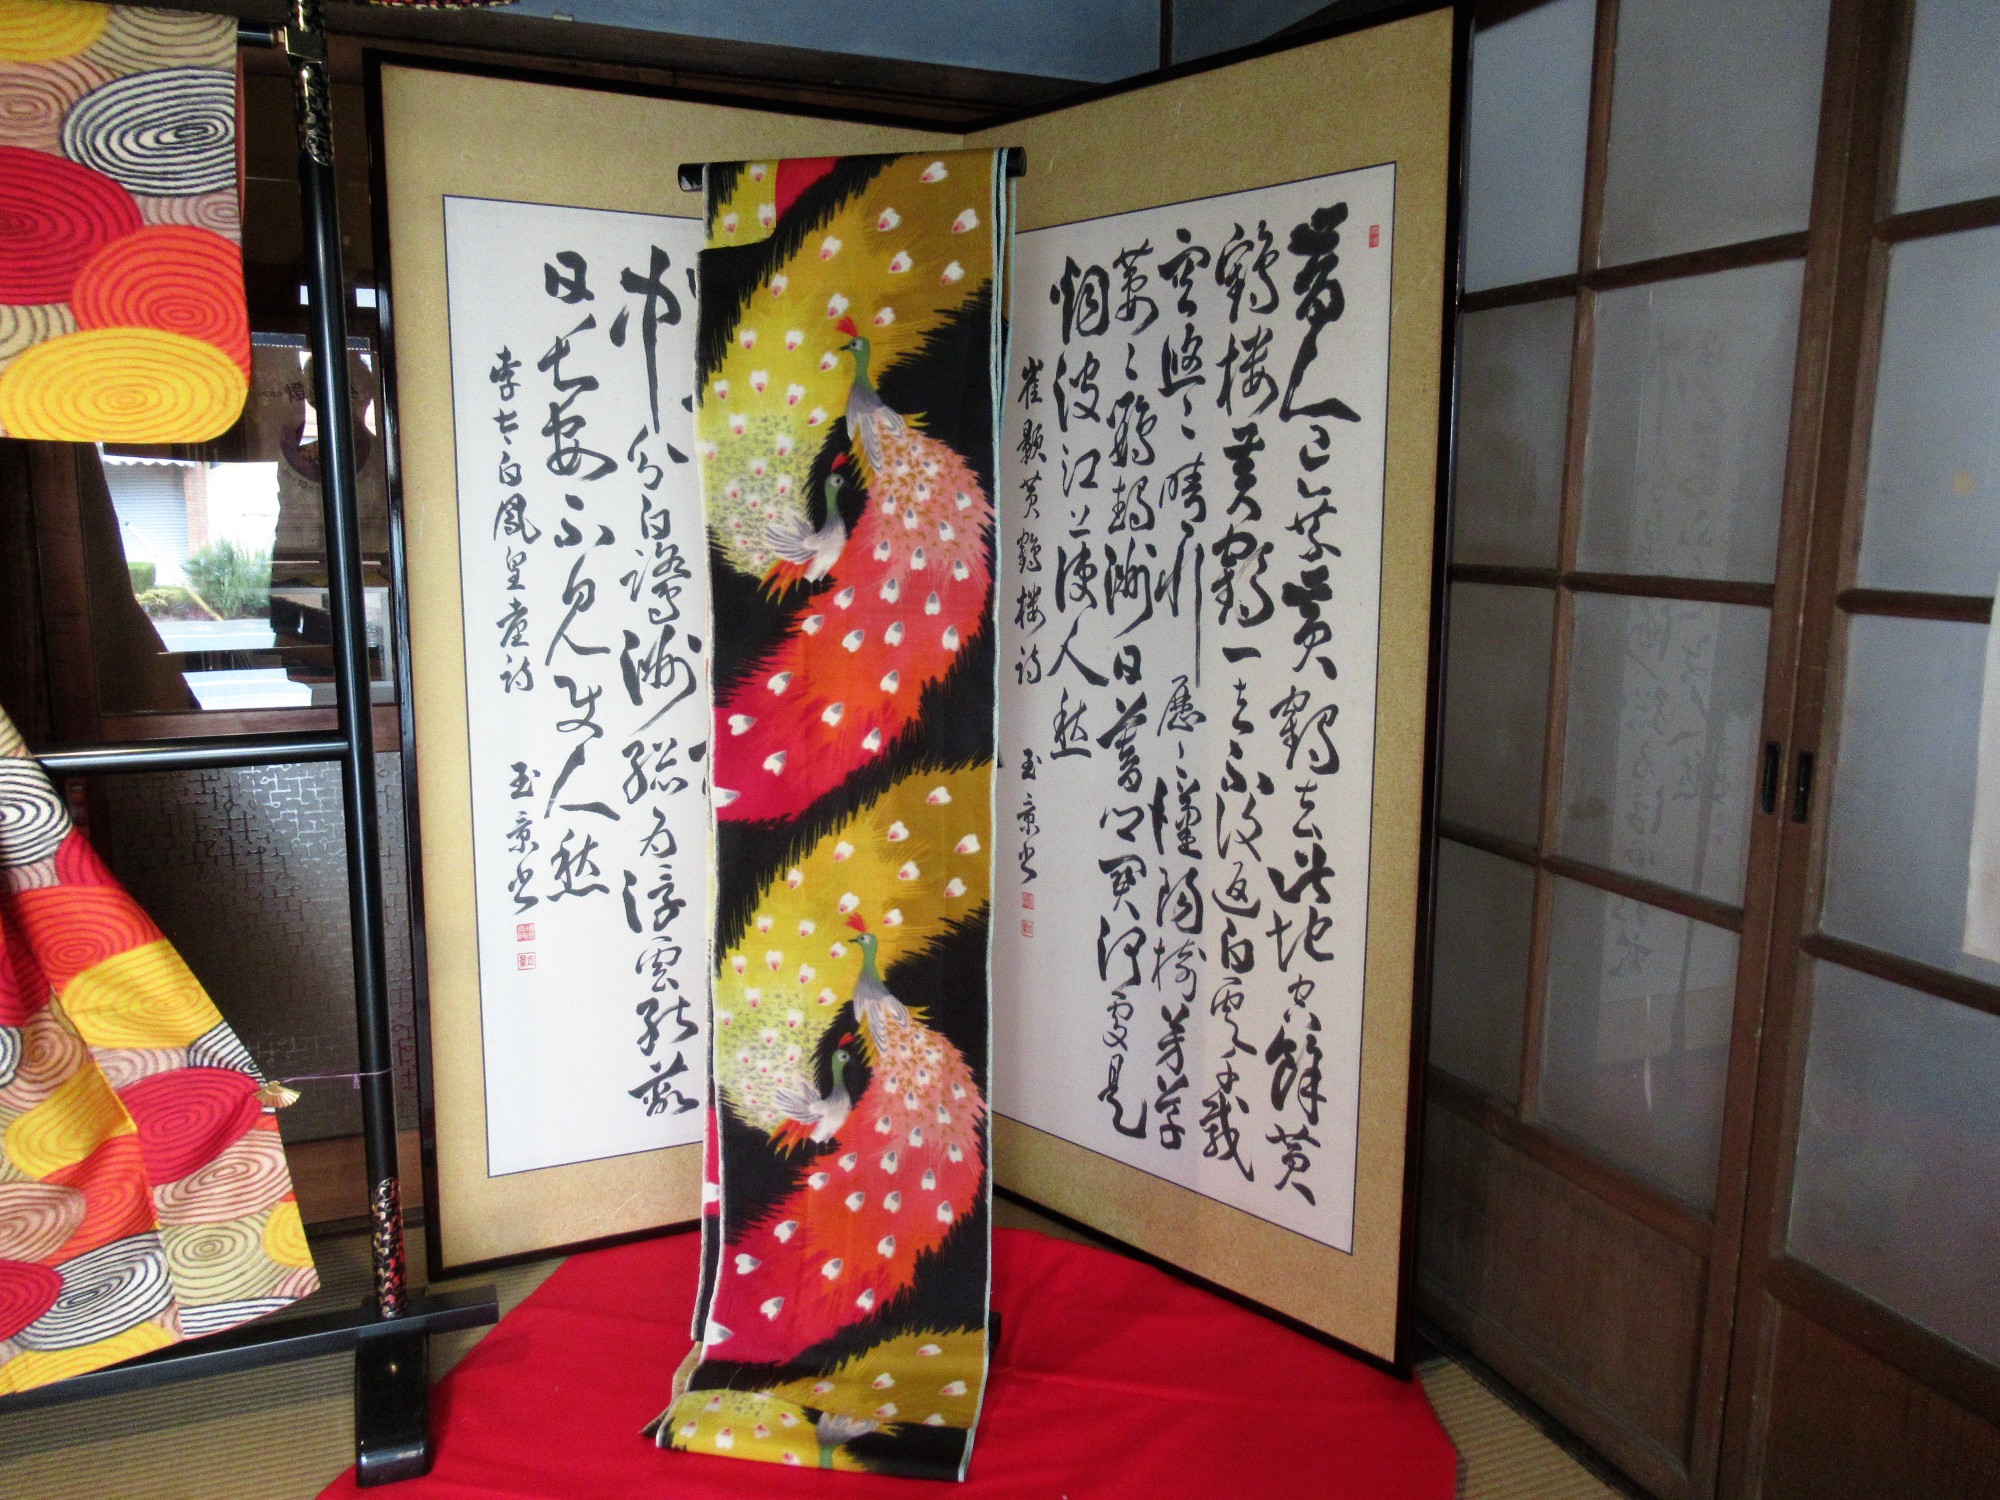 昔人已乗黄鶴去此地空餘黄
鶴楼黄鶴一去不復返白雲千載
空悠々晴川歴々漢陽樹芳草
萋々鸚鵡洲日暮郷関何処是
烟波江上使人愁
崔顥黄鶴楼詩 玉景書
中分白鷺洲総為浮雲能蔽
日長安不見使人愁
李太白鳳皇臺詩 玉景書